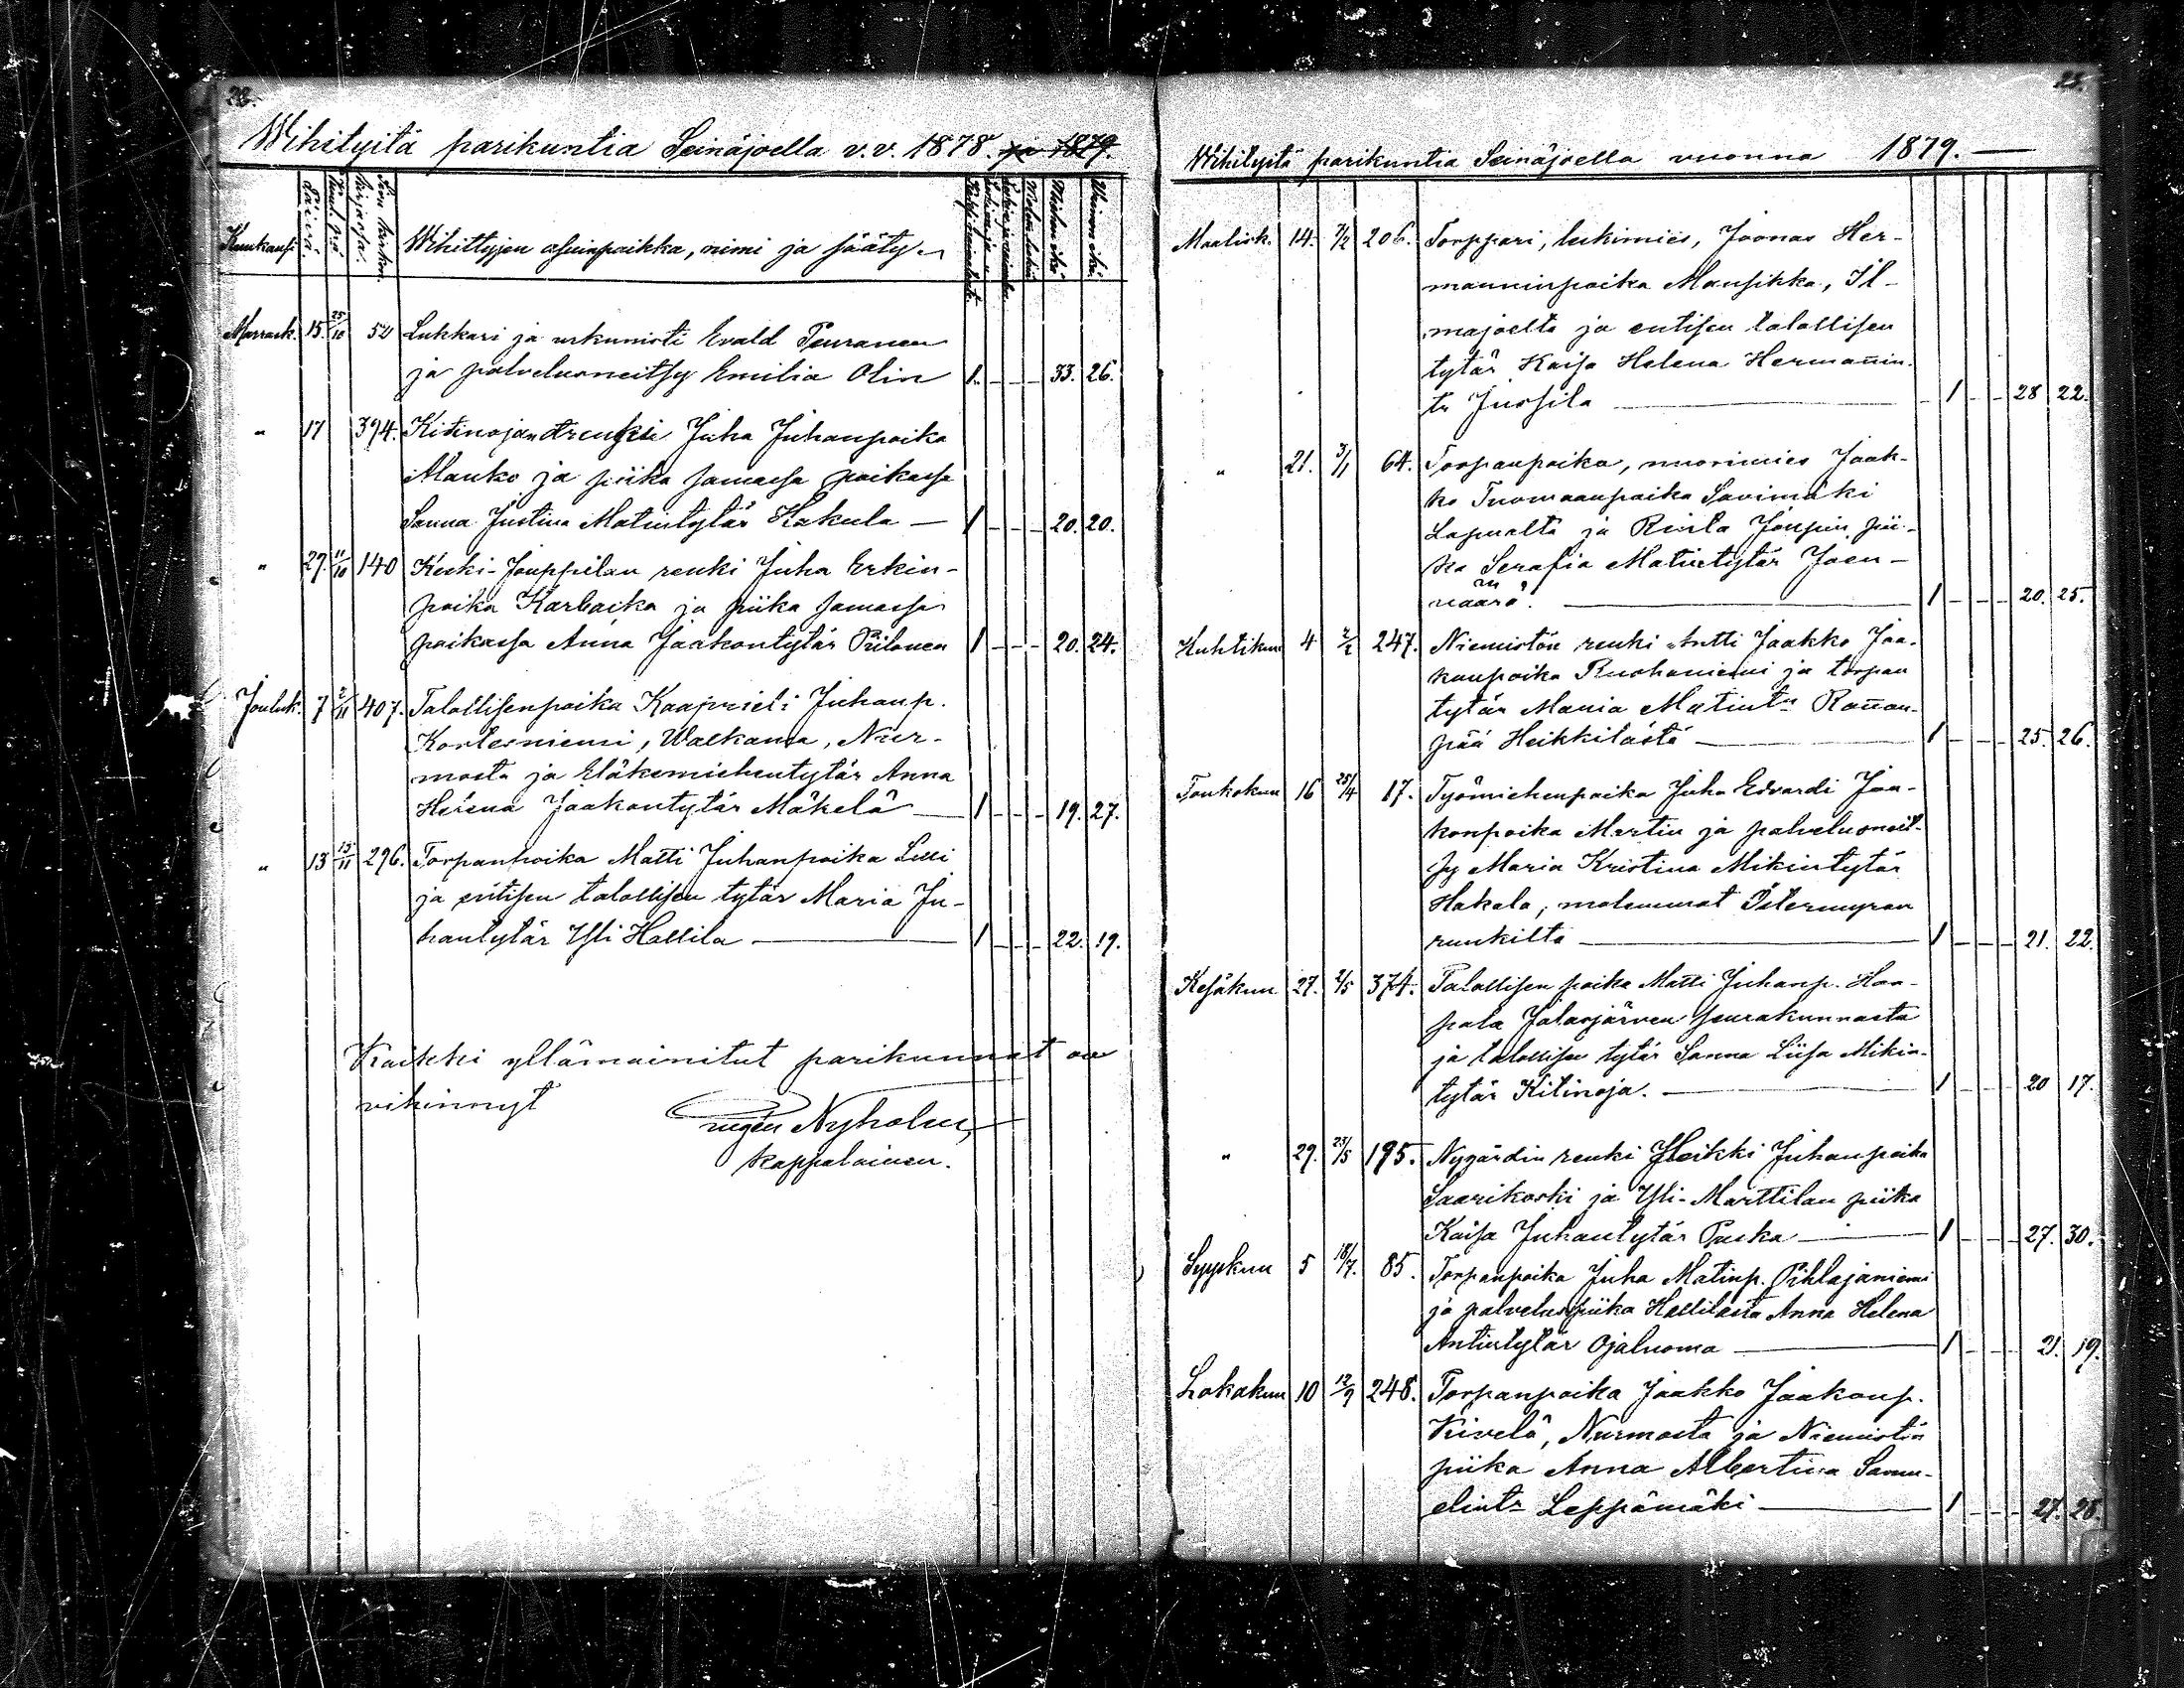 22.
Wihityitä parikuntia Seinäjoella v.v. 1878. ja 1879.
Kuukausi. Päivä. Kuul. p:vä Siv. kirkon kirjassa. Wihittyjen asuinpaikka, nimi ja sääty. Miehen ikä. Waimon ikä.
Marrask. 15. 25/10 52 Lukkari ja urkunisti Evald Teuranen
ja palvelusneitsy Emilia Olin 1. - - - 33. 26.
" 17 394. Kitinojan renki Juha Juhanpoika
Manko ja piika samassa paikassa
Sanna Justina Matintytär Kakula — 1 - - - 20. 20.
" 29. 11/10 140 Keski-Jouppilan renki Juha Erkin-
poika Karbacka ja piika samassa
paikassa Anna Jaakontytär Piilonen 1 - - - 20. 24.
Jouluk. 7 2/11 407. Talollisenpoika Kaaprieli Juhanp.
Kortesniemi, Walkama, Nur-
mosta ja Eläkemiehentytär Anna
Helena Jaakontytär Mäkelä — 1 - - - 19. 27.
" 13 15/11 296. Torpanpoika Matti Juhanpoika Lilli
ja entisen talollisen tytär Maria Ju-
hantytär Yli Hallila — 1 - - - 22. 19.
Kaikki yllämainitut parikunnat on
vihkinnyt
Nyholm,
kappalainen.
23.
Wihityitä parikuntia Seinäjoella vuonna 1879. —
Maalisk. 14. 7/2 206. Torppari, leskimies, Joonas Her-
manninpoika Mansikka, Il-
majoelta ja entisen talollisen
tytär Kaisa Helena Hermannin-
tr Jussila — - 1 - - 28 22.
" 21. 3/1 64. Torpanpoika, nuorimies Jaak-
ko Tuomaanpoika Savimäki
Lapualta ja Rinta Joupin pii-
ka Serafia Matintytär Joen-
määrä. — 1 - - - 20. 25.
Huhtikuu 4 2/2 247. Niemistön renki Antti Jaakko Jaa-
konpoika Ruohoniemi ja torpan
tytär Maria Matintr Rannan-
pää Heikkilästä — 1 - - - 25. 26.
Toukokuu 16 25/4 17. Työmiehenpoika Juha Edvardi Jaa-
konpoika Martin ja palvelusneit-
sy Maria Kristina Mikintytär
Hakala, molemmat Östermyran
ruukilta — 1 - - - 21. 22.
Kesäkuu 27. 2/5 374. Talollisen poika Matti Juhanp. Haa-
pala Jalasjärven seurakunnasta
ja talollisen tytär Sanna Liisa Mikin-
tytär Kitinoja. — 1 - - - 20 17.
" 29. 23/5 195. Nygårdin renki Heikki Juhanpoika
Saarikoski ja Yli-Marttilan piika
Kaisa Juhantytär Puska — 1 - - - 27. 30.
Syyskuu 5 18/7. 85. Torpanpoika Juha Matinp. Pihlajaniemi
ja palveluspiika Hallilasta Anna Helena
Antintytär Ojaluoma — 1 - - - 21. 19.
Lokakuu 10 12/9 248. Torpanpoika Jaakko Jaakonp.
Kivelä, Nurmosta ja Niemistön
piika Anna Albertina Samu-
elintr Leppämäki — 1 - - - 27. 28.